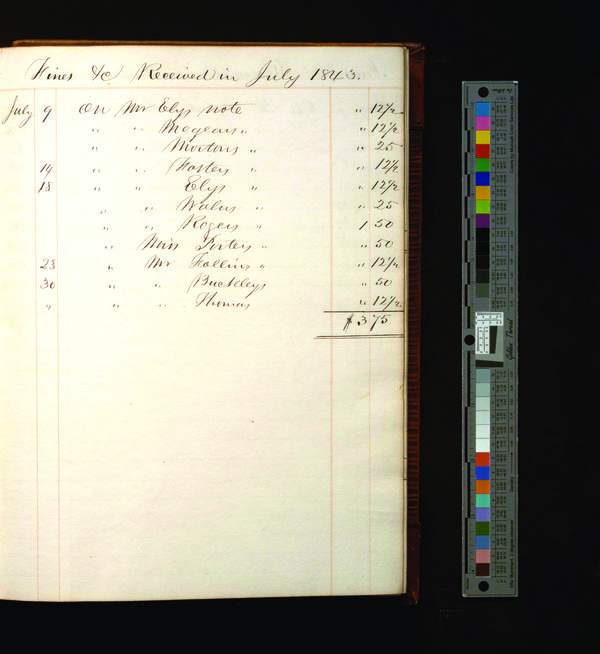 Fines &c Received in July 1843.
July 9 On Mr Elys note " 12½
" " Megears " " 12½
" " Mortons " " 25
14 " " Fosters " " 12½
18 " " Elys " " 12½
" " Wales " " 25
" " Rogers " 1 50
" Miss Porters " " 50
23 " Mr Follins " " 12½
30 " " Buckleys " 50
" " " Thomas " 12½
$ 3 75